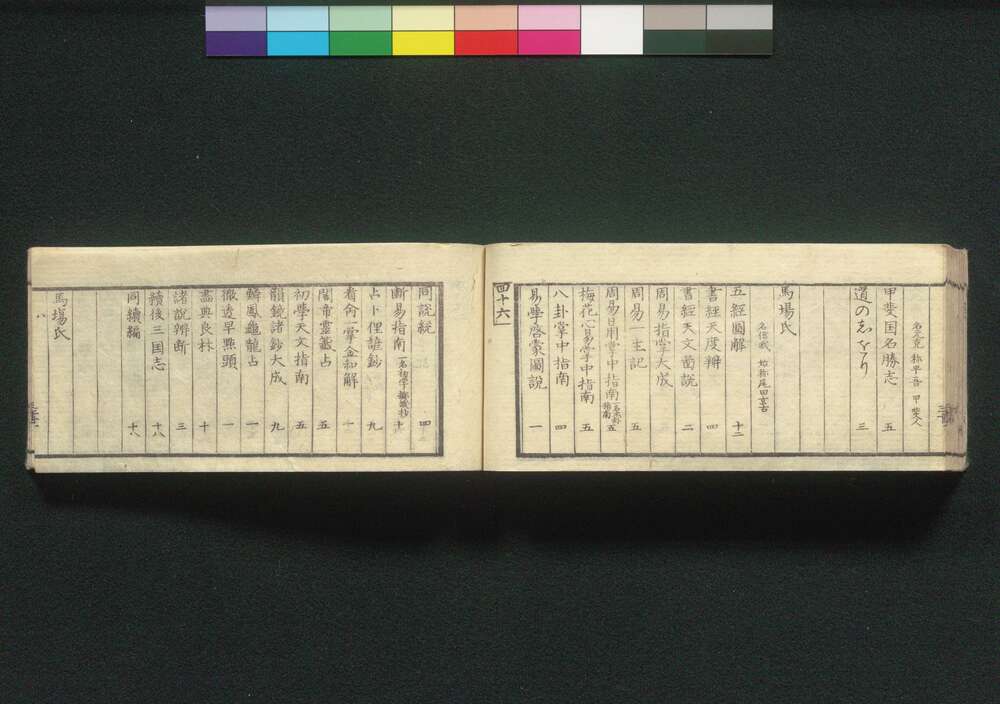 名定克 称平吾 甲斐人
甲斐国名勝志 五
道のしをり 三
馬場氏
名信武 始称尾田玄古
五經圖解 十二
書經天度辨 四
書經天文圖說 二
周易指掌大成 五
周易一生記 五
周易日用掌中指南 五
梅花心易掌中指南 五
八卦掌中指南 四
易學啓蒙圖說 一
四十六
同說統 四
斷易指南 十
占卜俚諺鈔 九
看命一掌金和解 十
關帝靈籤占 五
初學天文指南 五
韻鏡諸鈔大成 九
麟鳳龜龍占 一
徹透早點頭 一
畫典良材 十
諸說辨斷 三
續後三国志 十八
同續編 十八
馬場氏
八